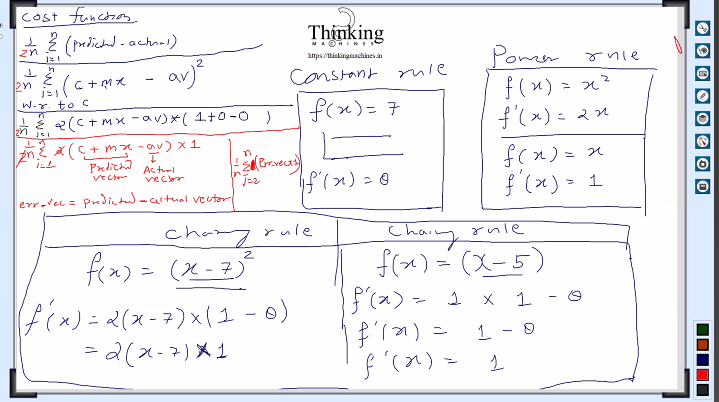 cost function
1/2n Σ i=1 n (predicted - actual)
1/2n Σ i=1 n (c + mx - av)²
w.r. to c
1/2n Σ i=1 n 2(c + mx - av) * (1+0-0)
1/2n Σ i=1 n 2(c + mx - av) x 1
Predicted vector
Actual vector
err-vec = predicted - actual vector
Thinking
MACHINES
https://thinkingmachines.in
constant rule
f(x) = 7
f'(x) = 0
Power rule
f(x) = x²
f'(x) = 2x
f(x) = x
f'(x) = 1
f(x) = (x - 7)²
f'(x) = 2(x - 7) x (1 - 0)
= 2(x - 7) x 1
f(x) = (x - 5)
f'(x) = 1 x 1 - 0
f'(x) = 1 - 0
f'(x) = 1